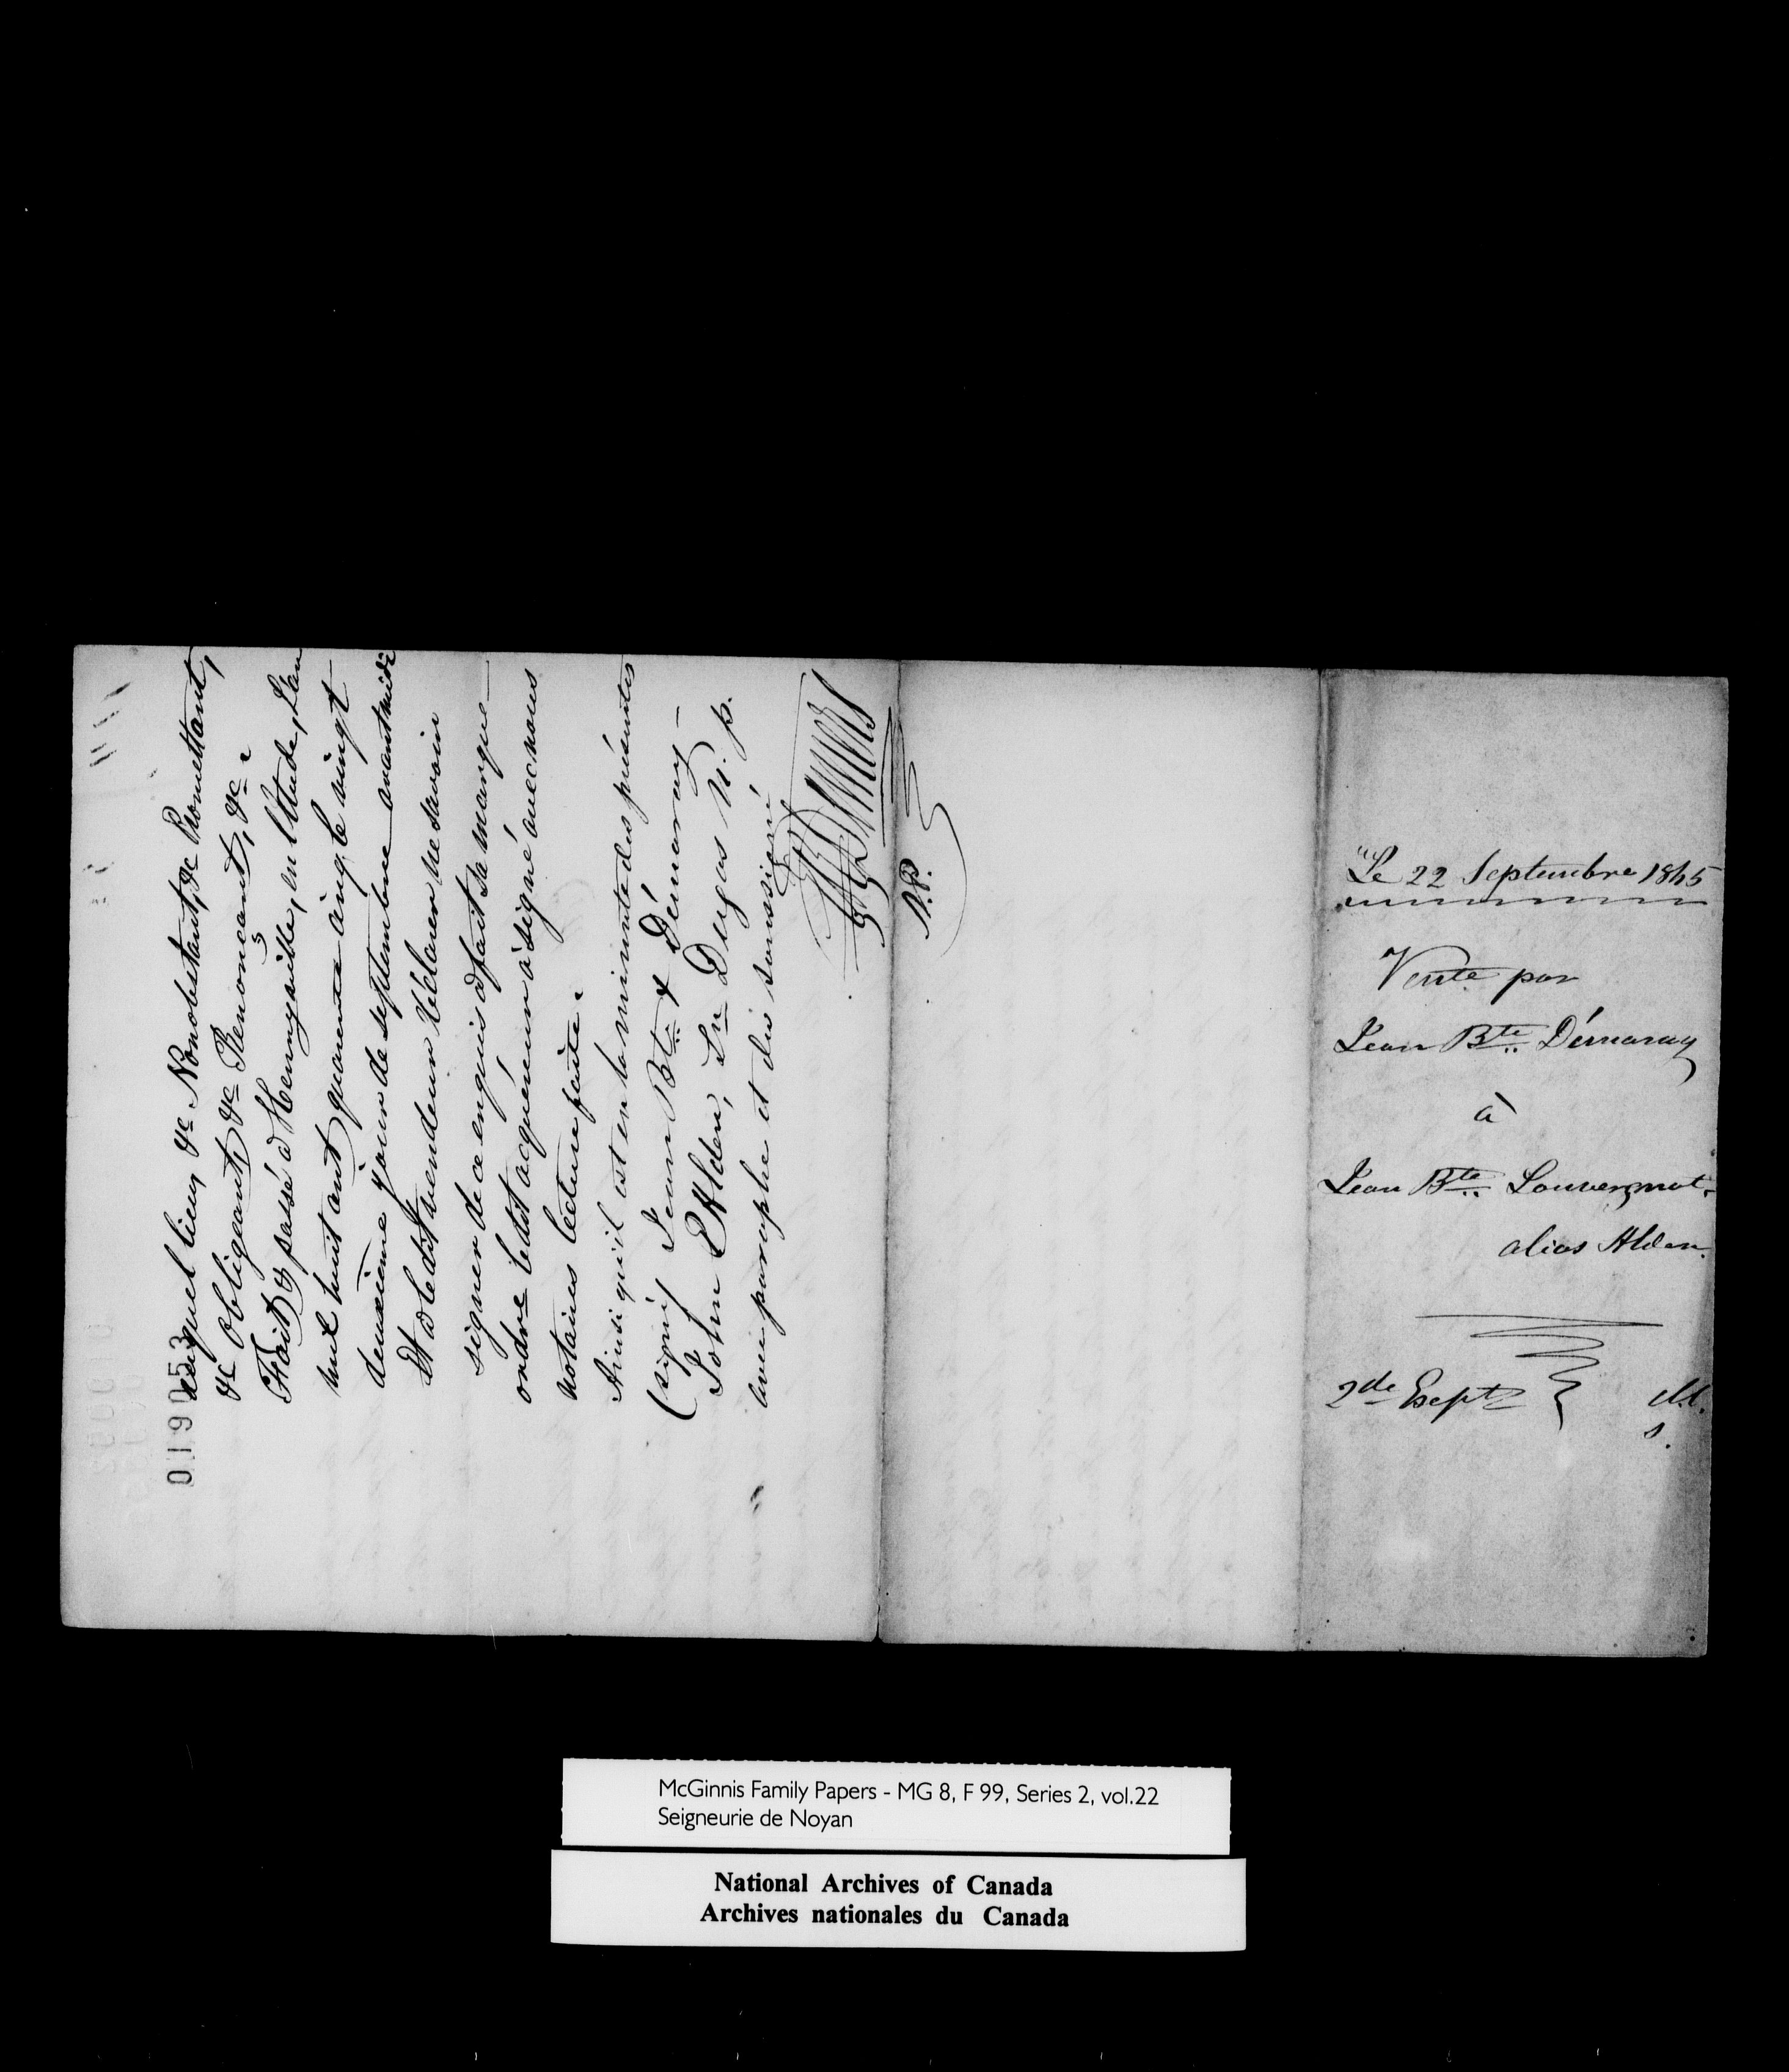 019053
auquel lieux &c Nonobstant, &c Promettant,
&c Obligeant, &c Renonçant, &c.
Fait & passé à Henryville, en l'étude, l'an
mil huit cent quarante cinq le vingt
deuxième jour de septembre avant midi
Et a ledit vendeur déclaré ne savoir
signer de ce enquis a fait sa marque
ordre ledit acquéreur a signé avec nous
notaires lecture faite.
Ainsi qu'il est en la minute des présentes
(signé) Jean Bte + Démaray -
John Alden, Dugas N. p.
avec paraphe et du soussigné
N.P.
Le 22 Septembre 1845
Vente par
Jean Bte Démaray
à
Jean Bte
alias Alden.
2de Expt
McGinnis Family Papers - MG 8, F 99, Series 2, vol.22
Seigneurie de Noyan
National Archives of Canada
Archives nationales du Canada